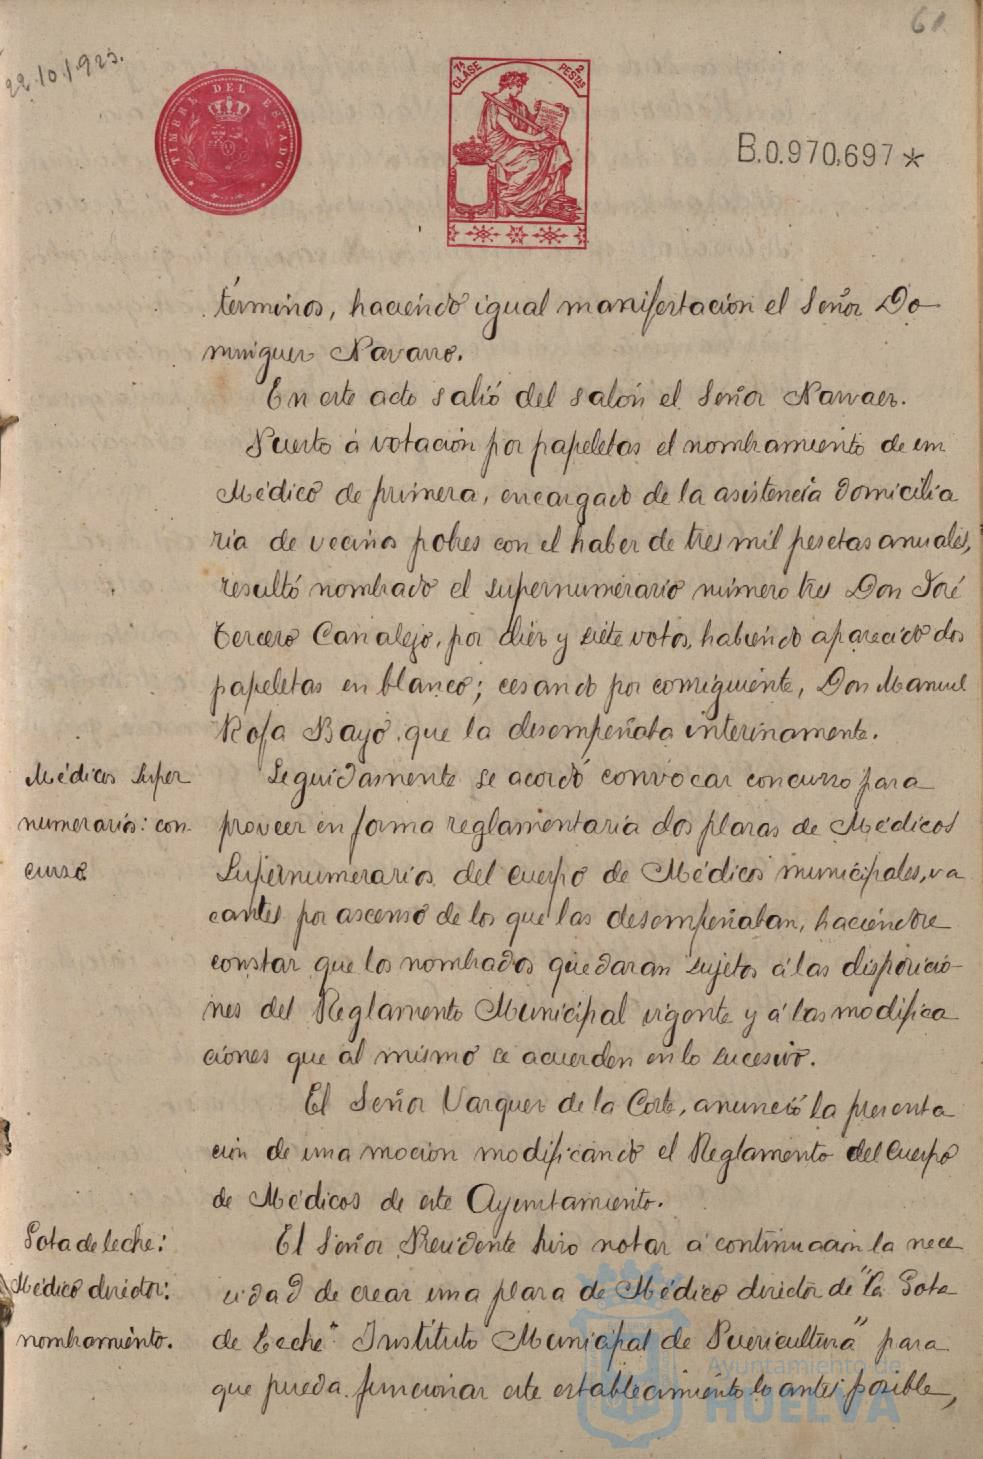 61
22.10.1923.
TIMBRE DEL ESTADO
7ª CLASE
2 PESTAS
B.0.970.697 *
términos, haciendo igual manifestación el Señor Do-
minguez Navarro.
En este acto salió del salón el Señor Narvaez.
Puesto á votación por papeletas el nombramiento de un
Médico de primera, encargado de la asistencia domicilia
ria de vecinos pobres con el haber de tres mil pesetas anuales,
resultó nombrado el supernumerario número tres Don José
Tercero Canalejo, por diez y siete votos, habiendo aparecido dos
papeletas en blanco; cesando por consiguiente, Don Manuel
Rofa Bayo, que la desempeñaba interinamente.
Médicos Super
numerarios: con-
curso
Seguidamente se acordó convocar concurso para
proveer en forma reglamentaria dos plazas de Médicos
Supernumerarios del Cuerpo de Médicos municipales, va
cantes por ascenso de los que las desempeñaban, haciéndose
constar que los nombrados quedaran sujetos á las disposicio-
nes del Reglamento Municipal vigente y á las modifica
ciones que al mismo se acuerden en lo sucesivo.
El Señor Vazquez de la Corte, anunció la presenta
ción de una moción modificando el Reglamento del Cuerpo
de Médicos de este Ayuntamiento.
Gota de leche:
Médico director:
nombramiento.
El Señor Presidente hizo notar á continuación la nece
sidad de crear una plaza de Médico director de "La Gota
de Leche" Instituto Municipal de Puericultura" para
que pueda funcionar este establecimiento lo antes posible,
Ayuntamiento de
HUELVA